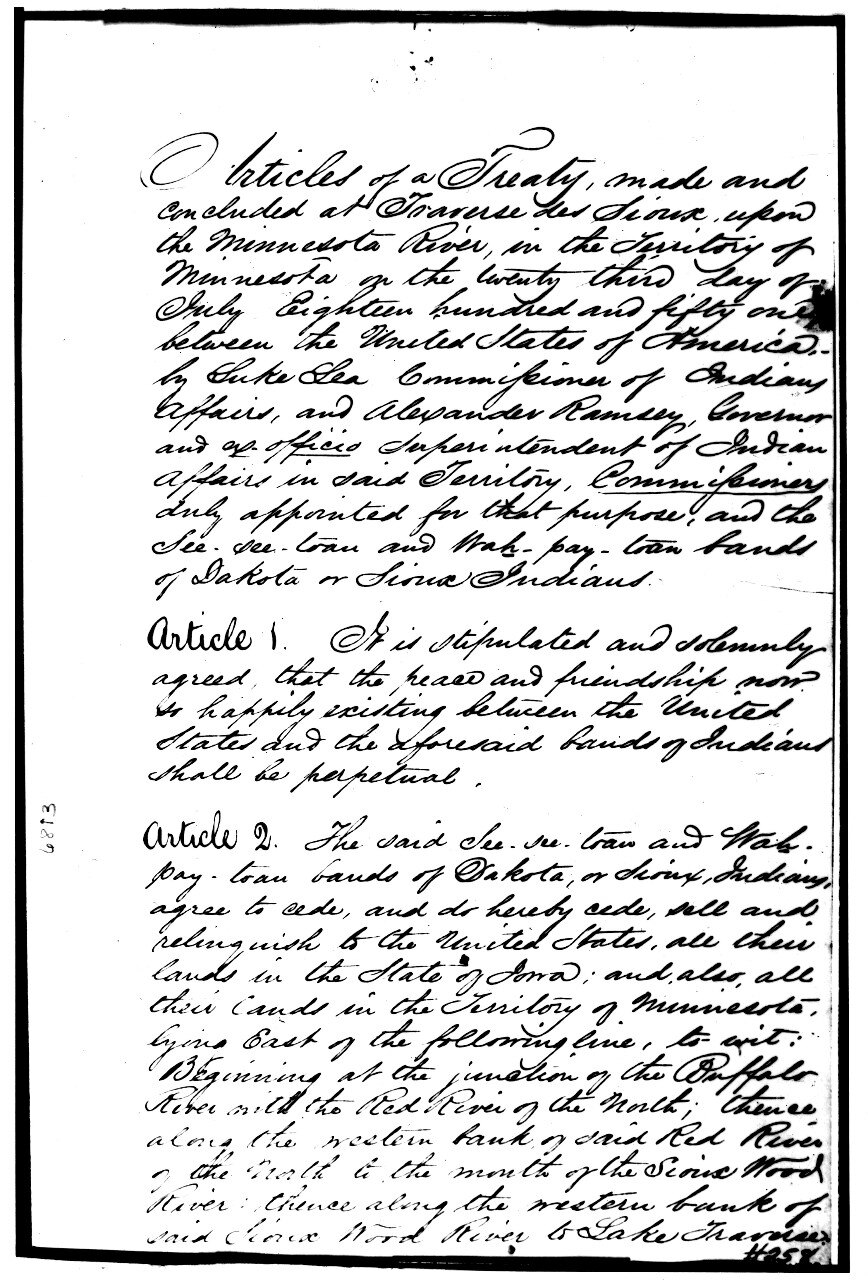 Articles of a Treaty, made and
concluded at Traverse des Sioux, upon
the Minnesota River, in the Territory of
Minnesota on the twenty third day of
July Eighteen hundred and fifty one
between the United States of America,-
by Luke Lea Commissioner of Indians
Affairs, and Alexander Ramsey, Governor
and ex-officio Superintendent of Indian
Affairs in said Territory, Commissioners
duly appointed for that purpose, and the
See-see-toan and Wah-pay-toan bands
of Dakota or Sioux Indians.
Article 1. It is stipulated and solemnly
agreed, that the peace and friendship now
so happily existing between the United
States and the aforesaid bands of Indians
shall be perpetual.
Article 2. The said See-see-toan and Wah-
pay-toan bands of Dakota, or Sioux, Indians,
agree to cede, and do hereby cede, sell and
relinquish to the United States, all their
lands in the State of Iowa; and, also, all
their lands in the Territory of Minnesota,
lying East of the following line, to wit:
Beginning at the junction of the Buffalo
River with the Red River of the North; thence
along the western bank of said Red River
of the North to the mouth of the Sioux Wood
River; thence along the western bank of
said Sioux Wood River to Lake Traverse;
6813
#258